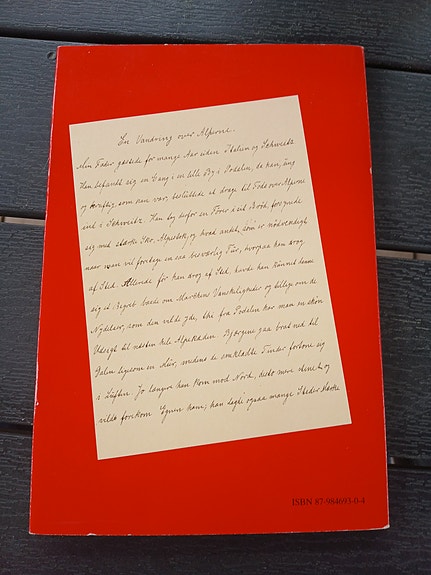 En Vandring over Alperne.
Min Fader gæstede for mange Aar siden Italien og Schweitz
Han befandt sig en Gang i en lille By i Podalen, da han, ung
og kraftig, som han var, besluttede at drage til Fods over Alperne
ind i Schweitz. Han leg derfor en Fører i sit Brød, forsynede
sig med stærke Sko, Alpestok, og hvad andet, som er nødvendigt
naar man vil foretage en saa besværlig Tur, hvorpaa han drog
af Sted. Allerede før han drog af Sted, havde han kunnet danne
sig et Begreb baade om Marchens Vanskeligheder og tillige om de
Nydelser, som den vilde yde, thi fra Podalen har man en skøn
Udsigt til næsten hele Alpekæden. Bjærgene gaa brat ned til
Dalen ligesom en Mur, medens de sneklædte Tinder fortone sig
i Luften. Jo længere han kom mod Nord, desto mere stenet og
vildt forekom Egnen ham, han lagde ogsaa mange Steder Mærke
ISBN 87-984693-0-4